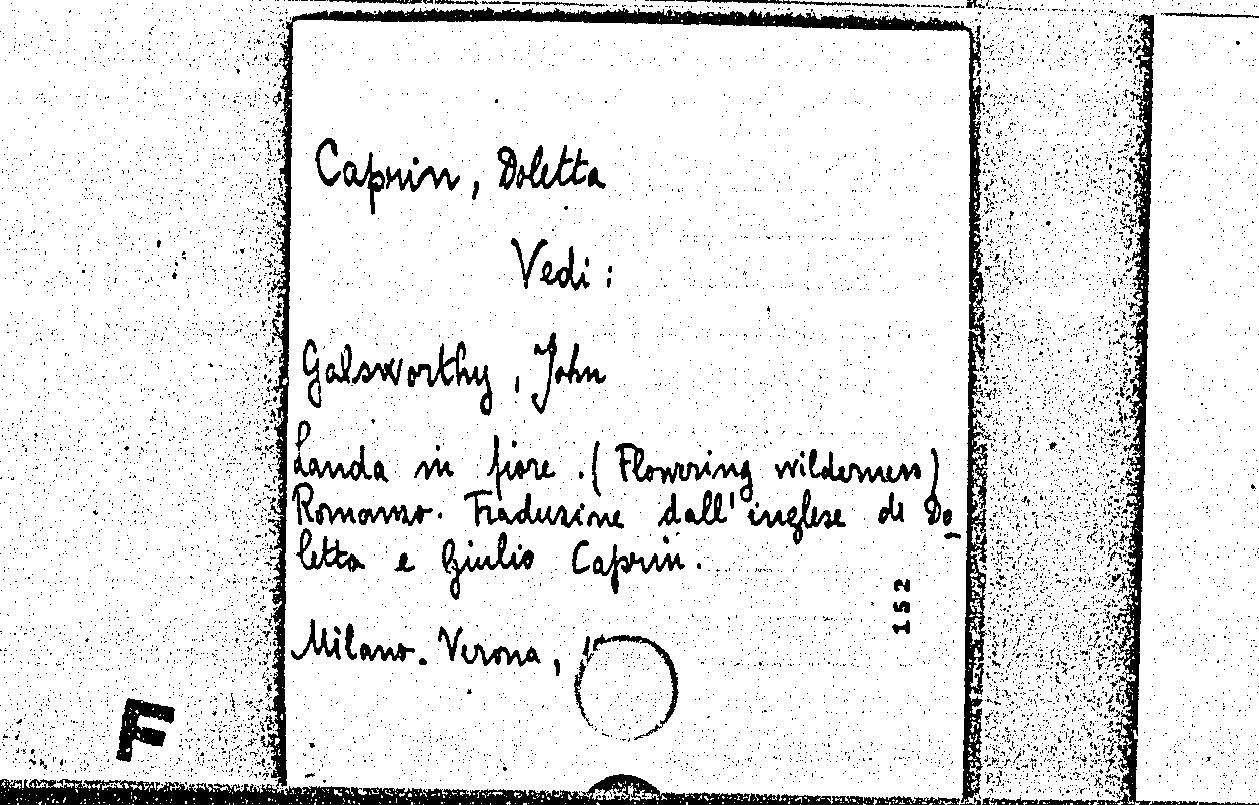 Caprin, Doletta
Vedi:
Galsworthy, John
Landa in fiore. (Flowering wilderness)
Romanzo. Traduzione dall'inglese di Do-
letta e Giulio Caprin.
152
Milano. Verona,
F